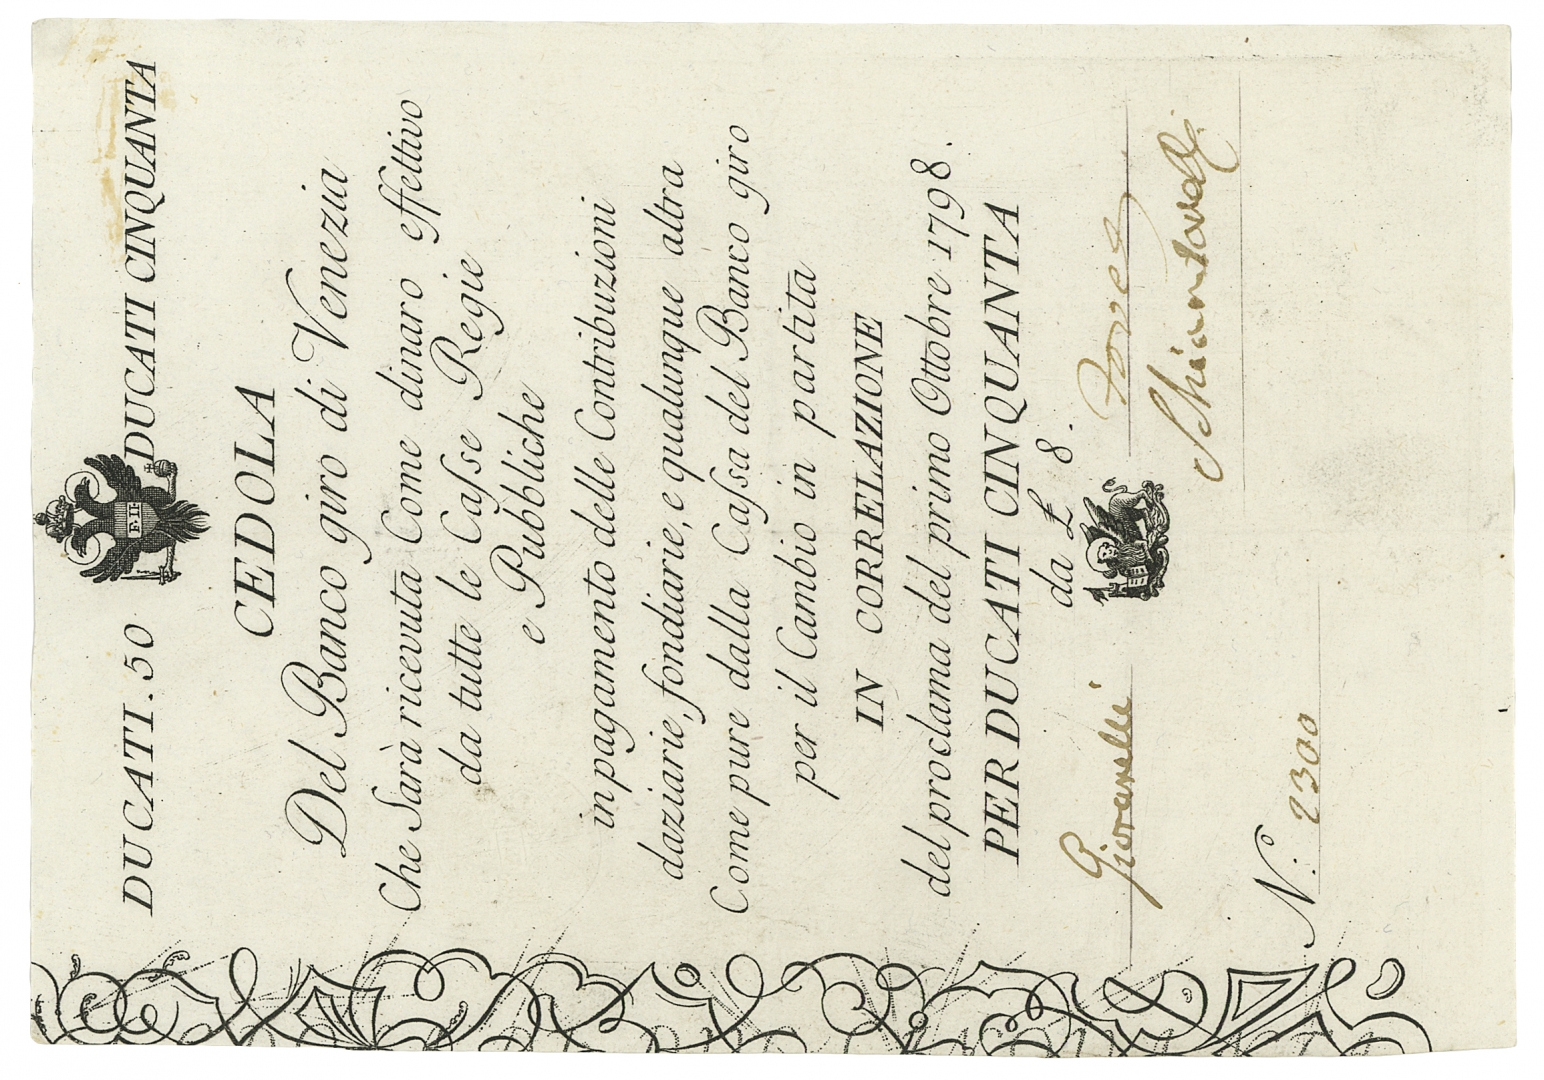 DUCATI. 50 DUCATI CINQUANTA
F. II.
CEDOLA
Del Banco giro di Venezia
Che Sarà ricevuta Come dinaro effettivo
da tutte le Caſse Regie
e Pubbliche
in pagamento delle Contribuzioni
daziarie, fondiarie, e qualunque altra
Come pure dalla Caſsa del Banco giro
per il Cambio in partita
IN CORRELAZIONE
del proclama del primo Ottobre 1798.
PER DUCATI CINQUANTA
da £ 8.
Giovanelli
N. 2300